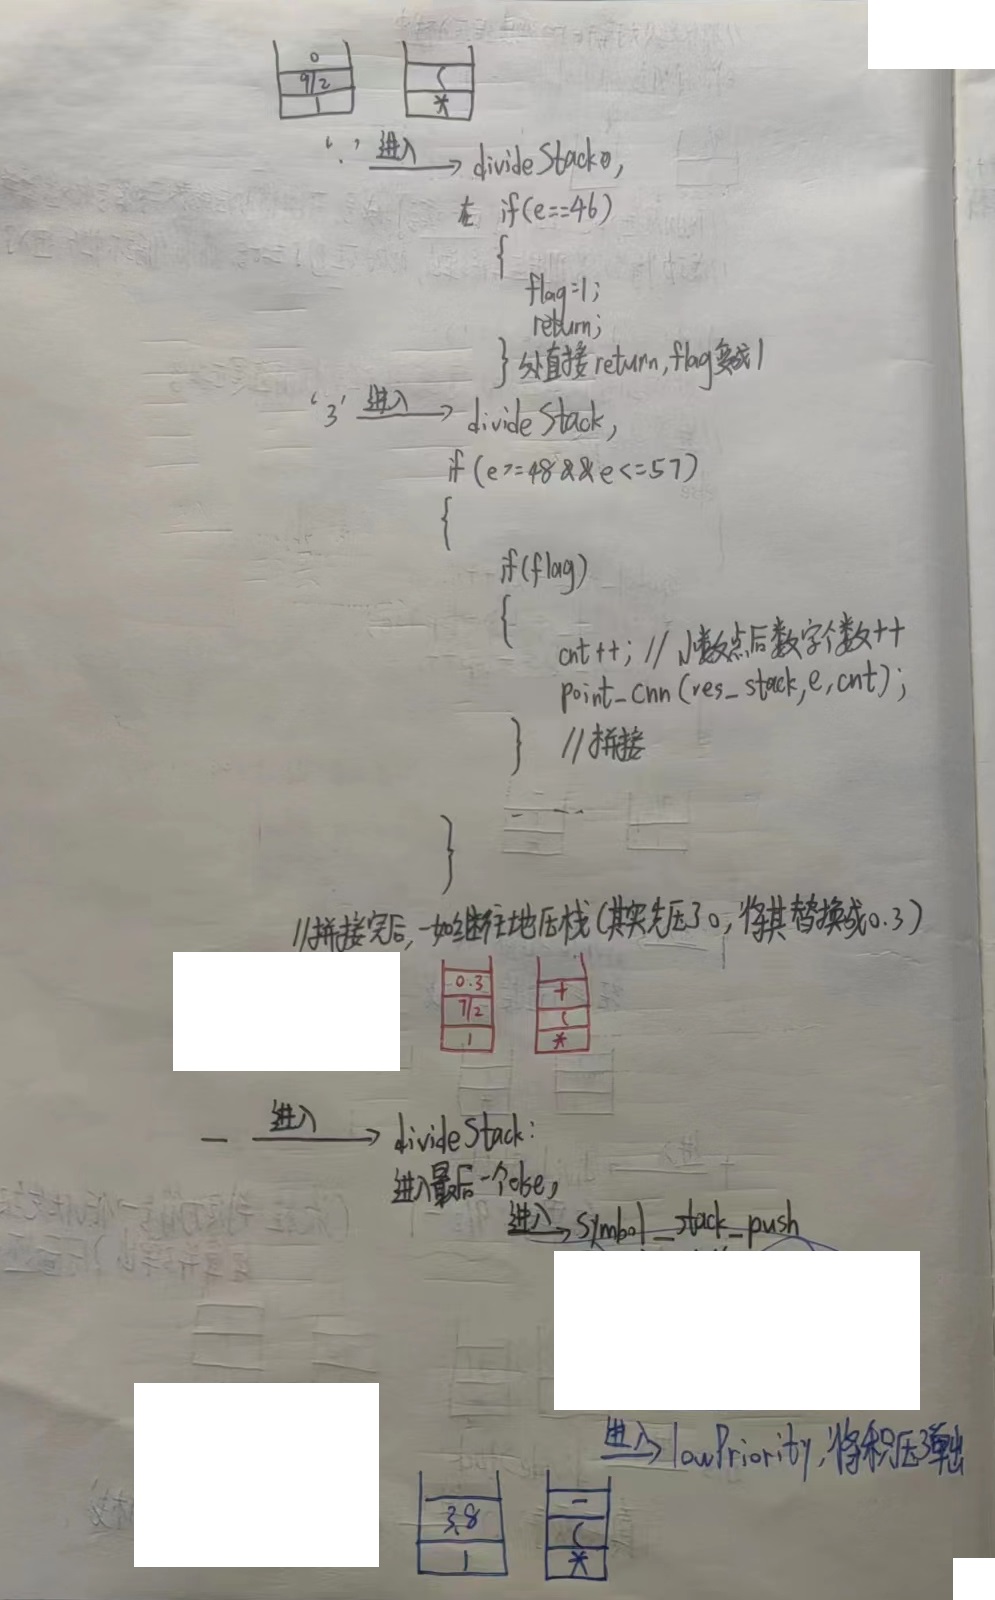 0
9/2
1
(
*
'.' 进入 divideStack,
在 if(e==46)
{
flag=1;
return;
} 处直接return,flag变成1
'3' 进入 divideStack,
if(e>=48&&e<=57)
{
if(flag)
{
cnt++; //小数点后数字个数++
point_cnn(res_stack,e,cnt);
} //拼接
}
//拼接完后,一如继往地压栈(其实先压了0,将其替换成0.3)
0.3
7/2
1
+
(
*
— 进入 divideStack:
进入最后一个else,
进入 symbol_stack_push
进入 lowPriority,将积压了弹出
3.8
1
-
(
*